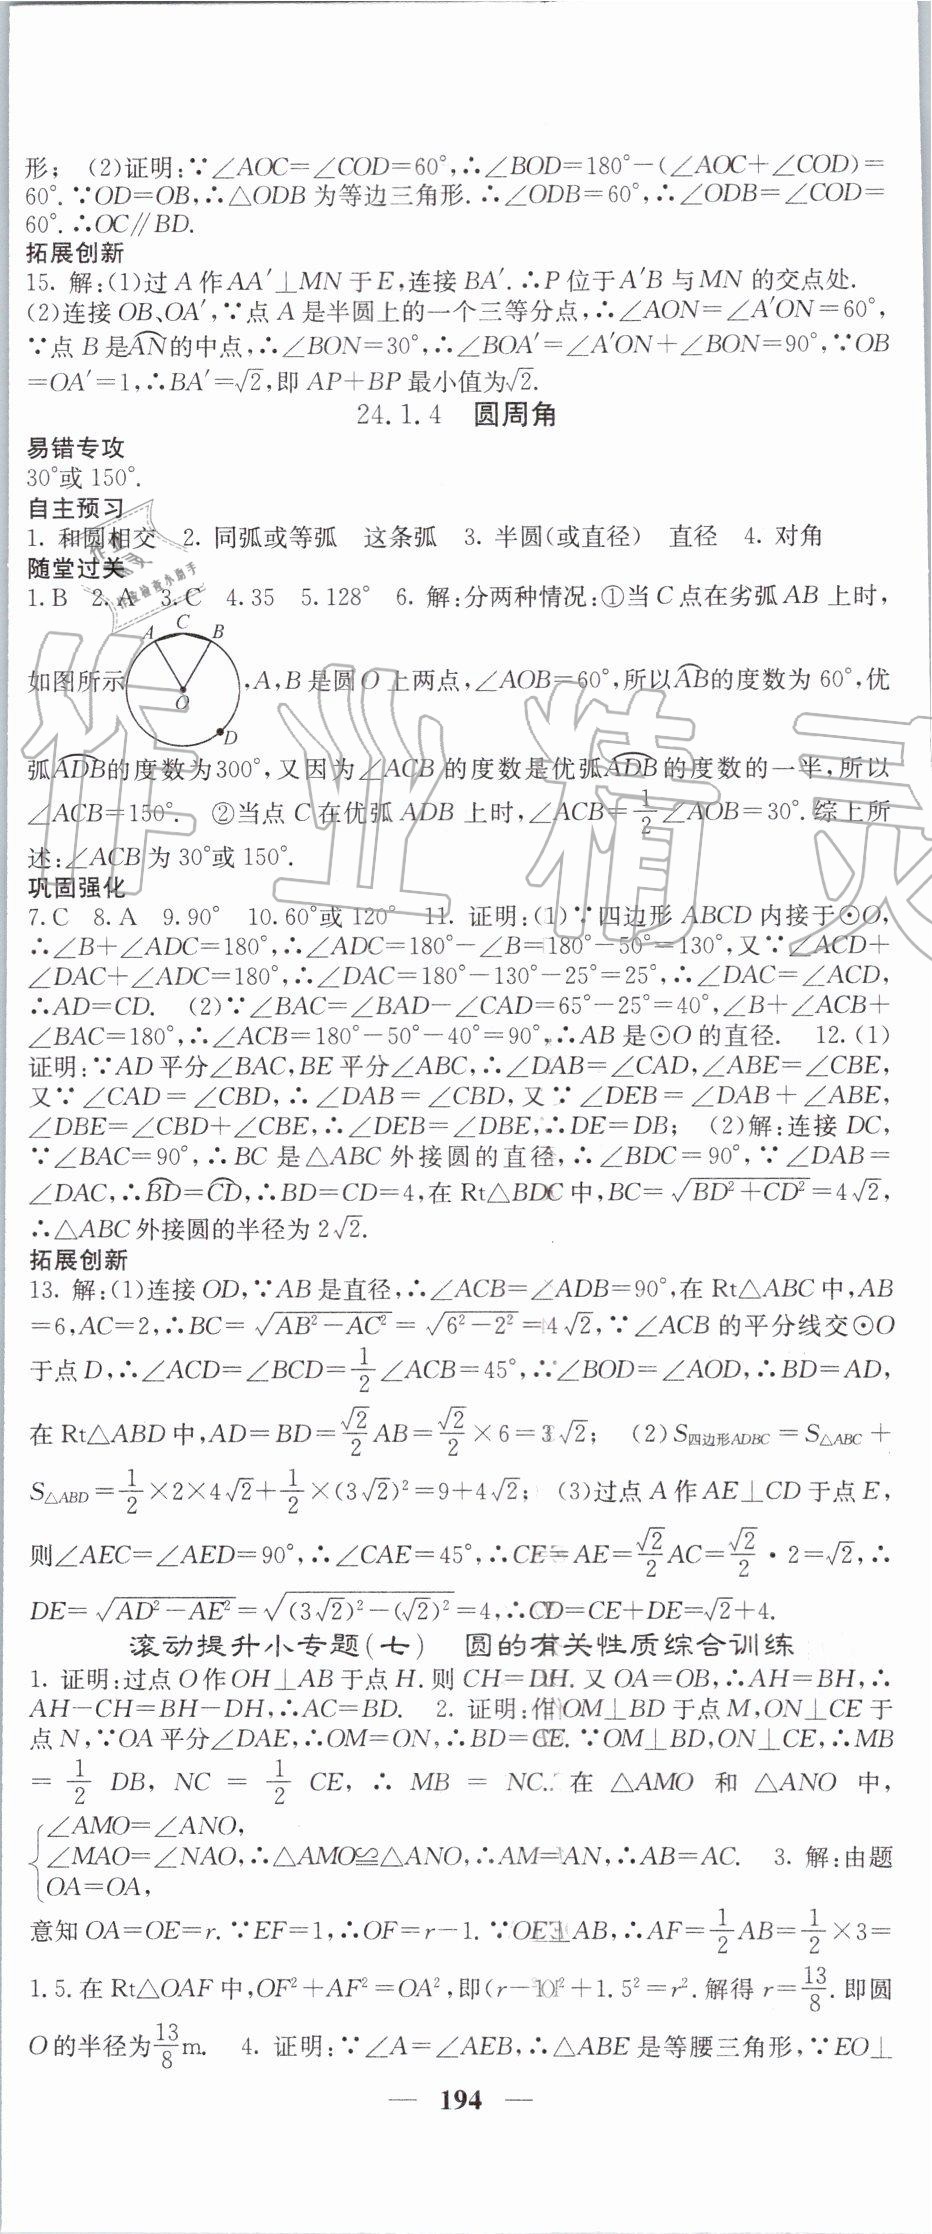 形；(2)证明:∵∠AOC=∠COD=60°,∴∠BOD=180°-(∠AOC+∠COD)=
60°.∵OD=OB,∴△ODB 为等边三角形.∴∠ODB=60°,∴∠ODB=∠COD=
60°.∴OC∥BD.
拓展创新
15. 解:(1)过 A 作 AA′⊥MN 于 E,连接 BA′.∴P 位于 A′B 与 MN 的交点处.
(2)连接 OB、OA′,∵点 A 是半圆上的一个三等分点,∴∠AON=∠A′ON=60°,
∵点 B 是A͡N的中点,∴∠BON=30°,∴∠BOA′=∠A′ON+∠BON=90°,∵OB
=OA′=1,∴BA′=√2,即 AP+BP 最小值为√2.
24.1.4 圆周角
易错专攻
30°或 150°.
自主预习
1. 和圆相交 2. 同弧或等弧 这条弧 3. 半圆(或直径) 直径 4. 对角
随堂过关
1.B 2.A 3.C 4.35 5.128° 6. 解:分两种情况:①当 C 点在劣弧 AB 上时,
A C B
如图所示 O ,A,B 是圆 O 上两点,∠AOB=60°,所以A͡B的度数为 60°,优
D
弧A͡DB的度数为300°,又因为∠ACB 的度数是优弧A͡DB的度数的一半,所以
∠ACB=150°. ②当点 C 在优弧 ADB 上时,∠ACB=1/2∠AOB=30°.综上所
述:∠ACB 为 30°或 150°.
巩固强化
7.C 8.A 9.90° 10.60°或 120° 11. 证明:(1)∵四边形 ABCD 内接于⊙O,
∴∠B+∠ADC=180°,∴∠ADC=180°-∠B=180°-50°=130°,又∵∠ACD+
∠DAC+∠ADC=180°,∴∠DAC=180°-130°-25°=25°,∴∠DAC=∠ACD,
∴AD=CD. (2)∵∠BAC=∠BAD-∠CAD=65°-25°=40°,∠B+∠ACB+
∠BAC=180°,∴∠ACB=180°-50°-40°=90°,∴AB 是⊙O 的直径. 12.(1)
证明:∵AD 平分∠BAC,BE 平分∠ABC,∴∠DAB=∠CAD,∠ABE=∠CBE,
又∵∠CAD=∠CBD,∴∠DAB=∠CBD,又∵∠DEB=∠DAB+∠ABE,
∠DBE=∠CBD+∠CBE,∴∠DEB=∠DBE,∴DE=DB; (2)解:连接 DC,
∵∠BAC=90°,∴BC 是△ABC 外接圆的直径,∴∠BDC=90°,∵∠DAB=
∠DAC,∴B͡D=C͡D,∴BD=CD=4,在 Rt△BDC 中,BC=√(BD²+CD²)=4√2,
∴△ABC 外接圆的半径为 2√2.
拓展创新
13. 解:(1)连接 OD,∵AB 是直径,∴∠ACB=∠ADB=90°,在 Rt△ABC 中,AB
=6,AC=2,∴BC=√(AB²-AC²)=√(6²-2²)=4√2,∵∠ACB 的平分线交⊙O
于点 D,∴∠ACD=∠BCD=1/2∠ACB=45°,∵∠BOD=∠AOD,∴BD=AD,
在 Rt△ABD 中,AD=BD=√2/2AB=√2/2×6=3√2; (2)S四边形ADBC=S△ABC+
S△ABD=1/2×2×4√2+1/2×(3√2)²=9+4√2; (3)过点 A 作 AE⊥CD 于点 E,
则∠AEC=∠AED=90°,∴∠CAE=45°,∴CE=AE=√2/2AC=√2/2·2=√2,∴
DE=√(AD²-AE²)=√((3√2)²-(√2)²)=4,∴CD=CE+DE=√2+4.
滚动提升小专题(七) 圆的有关性质综合训练
1. 证明:过点 O 作 OH⊥AB 于点 H.则 CH=DH.又 OA=OB,∴AH=BH,∴
AH-CH=BH-DH,∴AC=BD. 2. 证明:作OM⊥BD 于点 M,ON⊥CE 于
点 N,∵OA 平分∠DAE,∴OM=ON,∴BD=CE.∵OM⊥BD,ON⊥CE,∴MB
=1/2 DB, NC=1/2 CE,∴MB=NC.在△AMO 和△ANO 中,
∠AMO=∠ANO,
∠MAO=∠NAO,∴△AMO≌△ANO,∴AM=AN,∴AB=AC. 3. 解:由题
OA=OA,
意知 OA=OE=r.∵EF=1,∴OF=r-1.∵OE⊥AB,∴AF=1/2AB=1/2×3=
1.5.在 Rt△OAF 中,OF²+AF²=OA²,即(r-1)²+1.5²=r².解得 r=13/8.即圆
O 的半径为13/8m. 4. 证明:∵∠A=∠AEB,∴△ABE 是等腰三角形,∵EO⊥
— 194 —
作业精灵